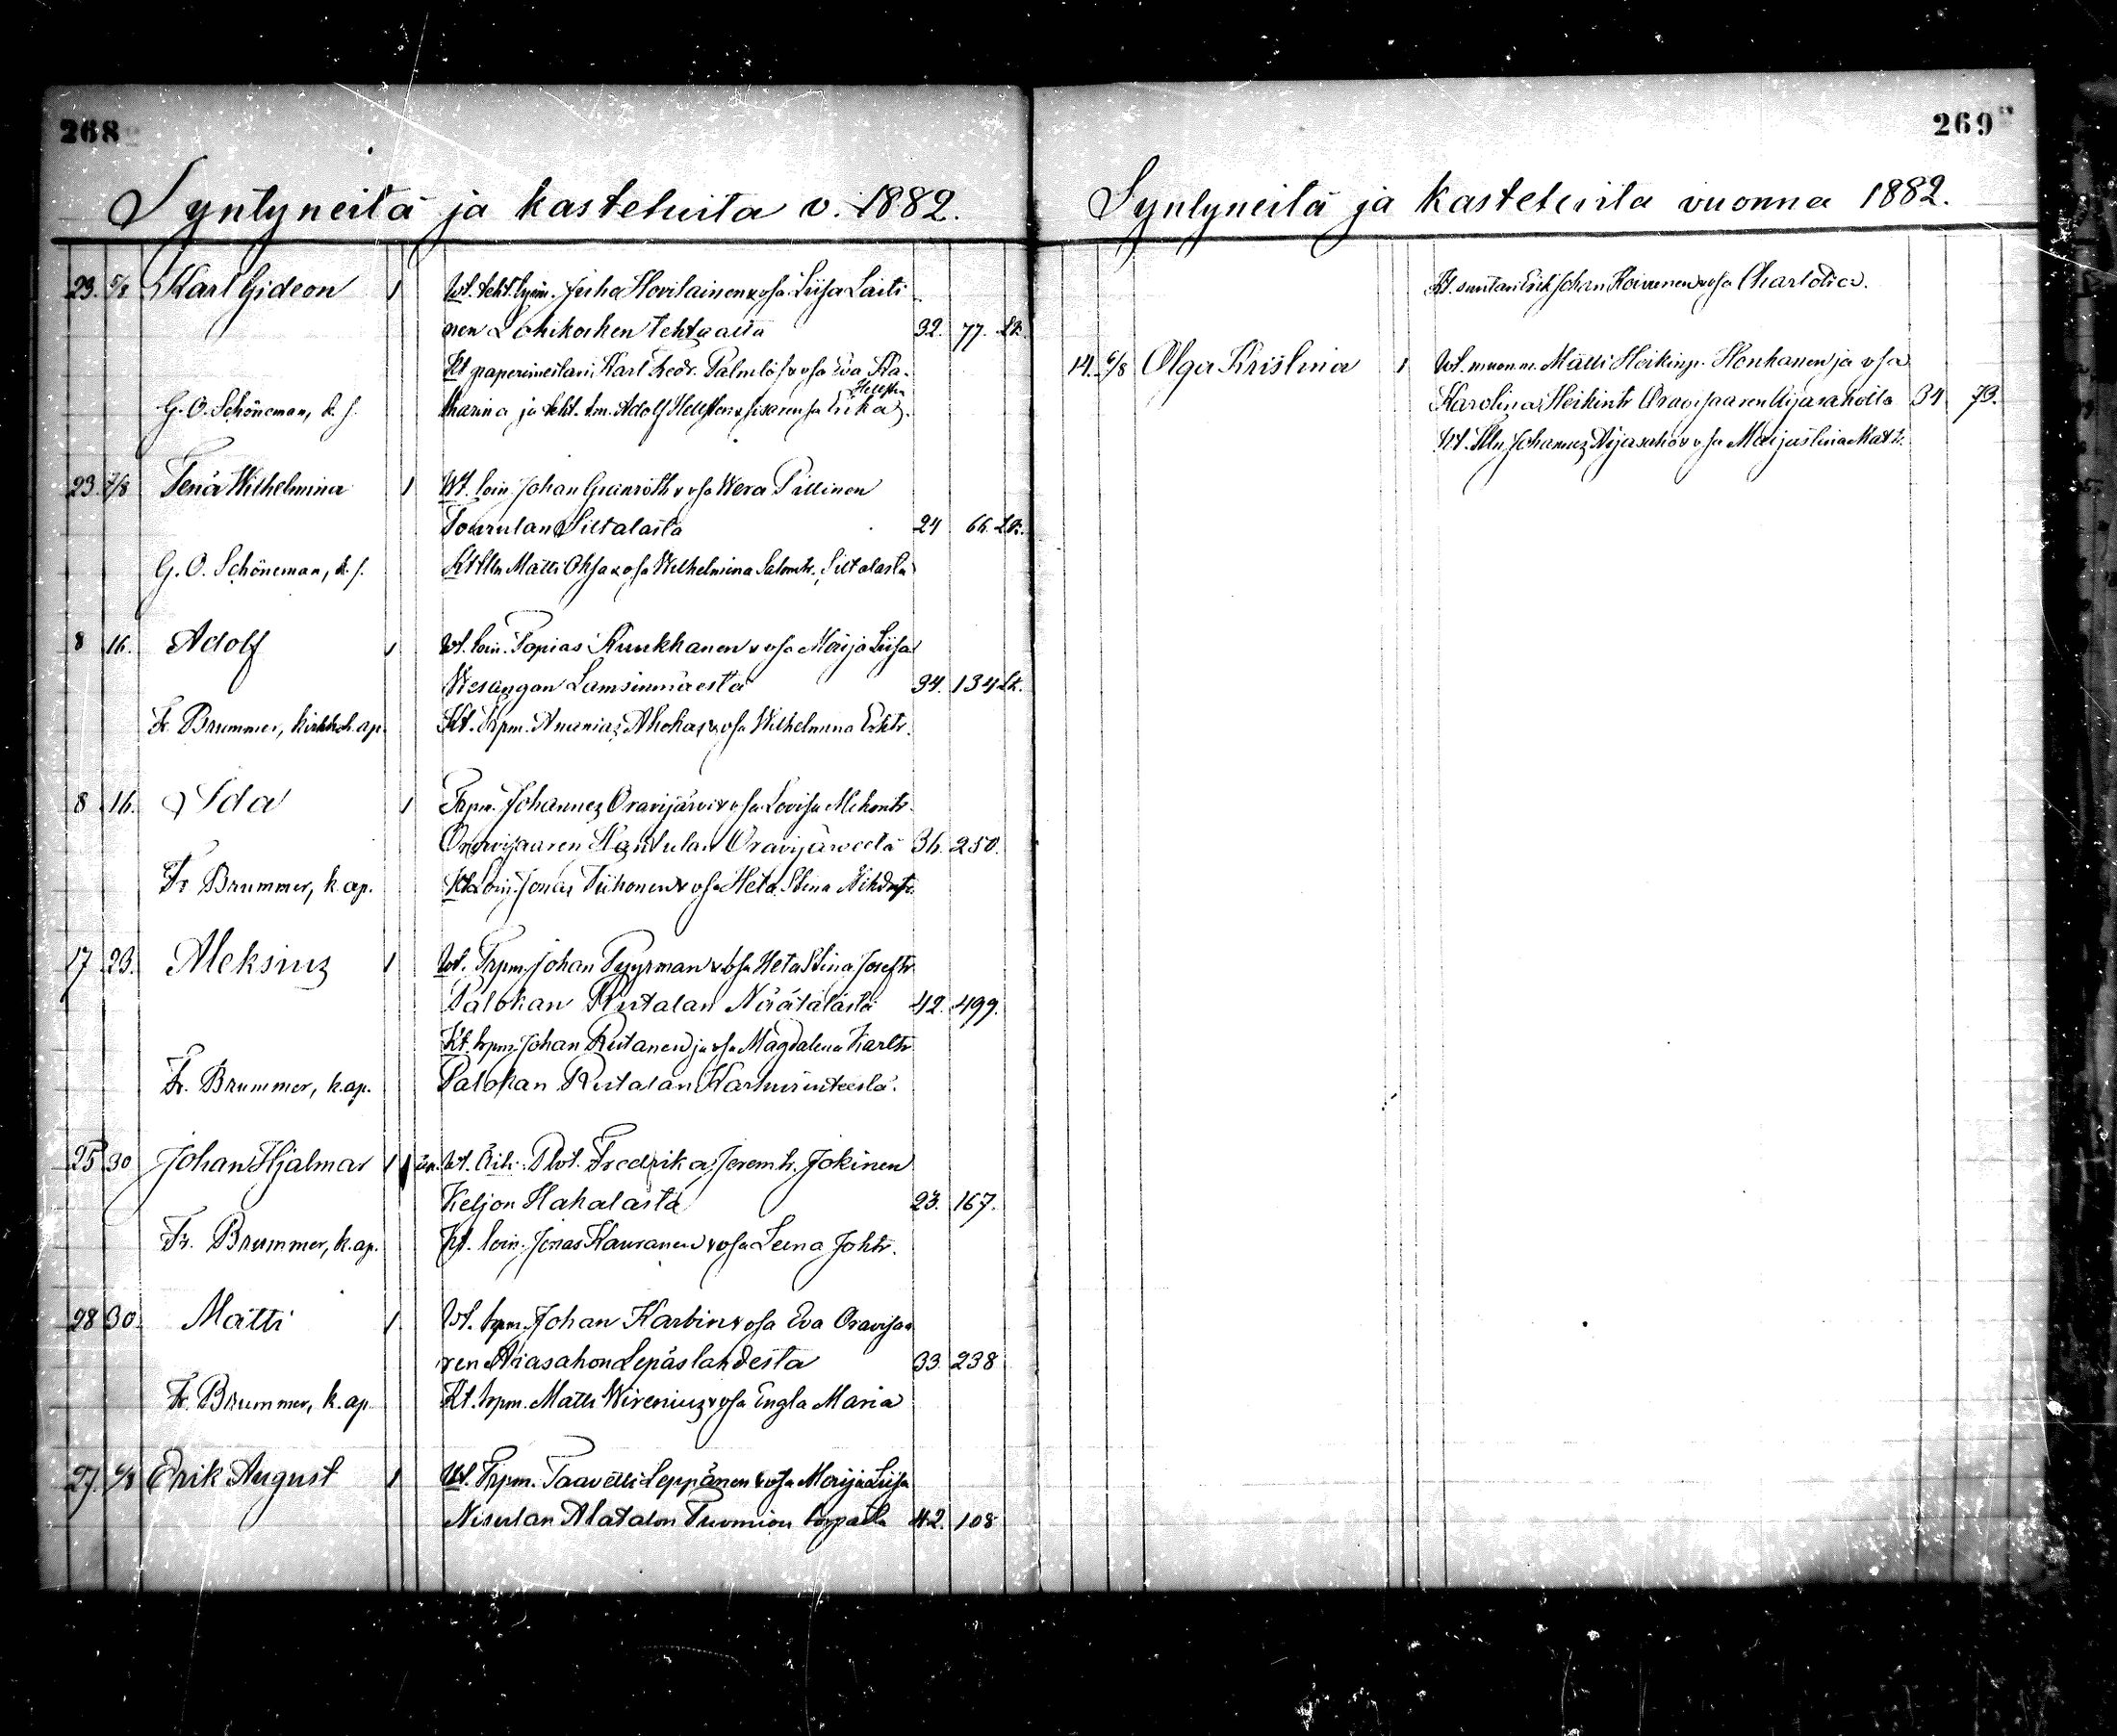 268
Syntyneitä ja kastetuita v. 1882.
23. 5/8 Karl Gideon 1 Wt. teht. työm. Juho Hovilainen & vsa Liisa Laiti
nen Lohikosken tehtaalta 32. 77. Lk.
Kt paperimestari Karl Fredr. Palmlöf & vsa Eva Ka-
Hellsten
G. O. Schöneman, k. s. tharina ja teht. tm. Adolf Hellsten & sisarensa Erika
23. 7/8 Fenä Wilhelmina 1 Wt. loin. Johan Granroth & vsa Wera Pillinen
Tourulan Siltalasta 24 66. Lk.
G. O. Schöneman, k. s. Kt Matti Oksa & vsa Wilhelmina Salomtr. Siltalasta
8 16. Adolf 1 Wt. loin. Topias Kunkhanen & vsa Maija Liisa
Wesangan Lamsinmäestä 34. 134 Lk.
Fr. Brummer, kirkkoh. ap. Kt. trpm. Ananias Ahokas & vsa Wilhelmina Erktr.
8 16. Ida 1 Trpm. Johannes Oravijärvi & vsa Lovisa
Oravisaaren Hantulan Oravijärveltä 36. 250.
Fr Brummer, k. ap. Kt Loin. Jonas Tiihonen & vsa Heta Stina
17 23. Aleksius 1 Wt. Trpm. Johan Pyyrman & vsa Heta Stina Joseftr
Palokan Ruitalan Näätälästä 42. 499.
Kt. trpm. Johan Rutanen ja vsa Magdalena Karltr
Fr. Brummer, k. ap. Palokan Ruitalan
25 30 Johan Hjalmar 1 äp. Wt. Äiti: Plvt. Fredrika Jeremtr. Jokinen
Keljon Hakalasta 23. 167.
Fr. Brummer, k. ap. Kt. loin. Jonas Kauranen & vsa Leena Johtr.
28 30. Matti 1 Wt. trpm. Johan Karbin & vsa Eva Oravisaa
ren Aiasahon Lepäslahdesta 33. 238
Fr. Brummer, k. ap. Kt. trpm. Matti Wirenius & vsa Engla Maria
27. 6/8 Erik August 1 Wt. Trpm. Taavetti Leppänen & vsa Maija Liisa
Nisulan Alatalon Tuomion torpasta 42. 108
269
Syntyneitä ja kastetuita vuonna 1882.
Kt. suntari Erik Johan Koivunen & vsa Charlotta.
14. 6/8 Olga Kristina 1 Wt. muonm. Matti Heikinp. Honkanen ja vsa
Karolina Heikintr Oravisaaren Aijasaholta 34 73.
Kt. Johannes Aijasaho & vsa Maijastina Mattr.